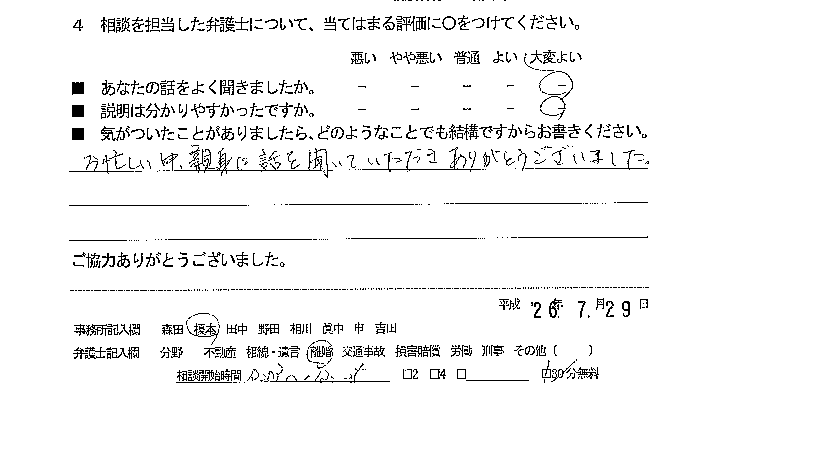 4 相談を担当した弁護士について、当てはまる評価に〇をつけてください。
悪い やや悪い 普通 よい 大変よい
■ あなたの話をよく聞きましたか。 - - - - -
■ 説明は分かりやすかったですか。 - - - - -
■ 気がついたことがありましたら、どのようなことでも結構ですからお書きください。
お忙しい中、親身に話を聞いていただきありがとうございました。
ご協力ありがとうございました。
平成 '26年 7.月29日
事務所記入欄 森田 榎本 田中 野田 相川 眞中 申 吉田
弁護士記入欄 分野 不動産 相続・遺言 離婚 交通事故 損害賠償 労働 刑事 その他( )
相談開始時間 □2 □4 □ □30分無料